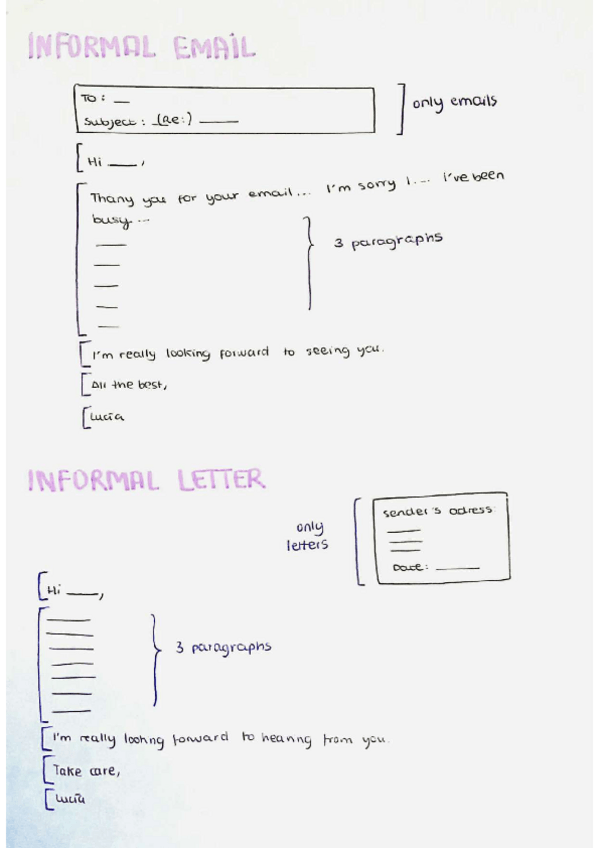 INFORMAL EMAIL
To: __
Subject: (Re:) ____
only emails
Hi ____,
Thany you for your email... I'm sorry I.... I've been
busy...
3 paragraphs
I'm really looking forward to seeing you.
All the best,
Lucía
INFORMAL LETTER
only
letters
sender's adress:
Date: ____
Hi ____,
3 paragraphs
I'm really looking forward to hearing from you.
Take care,
Lucía